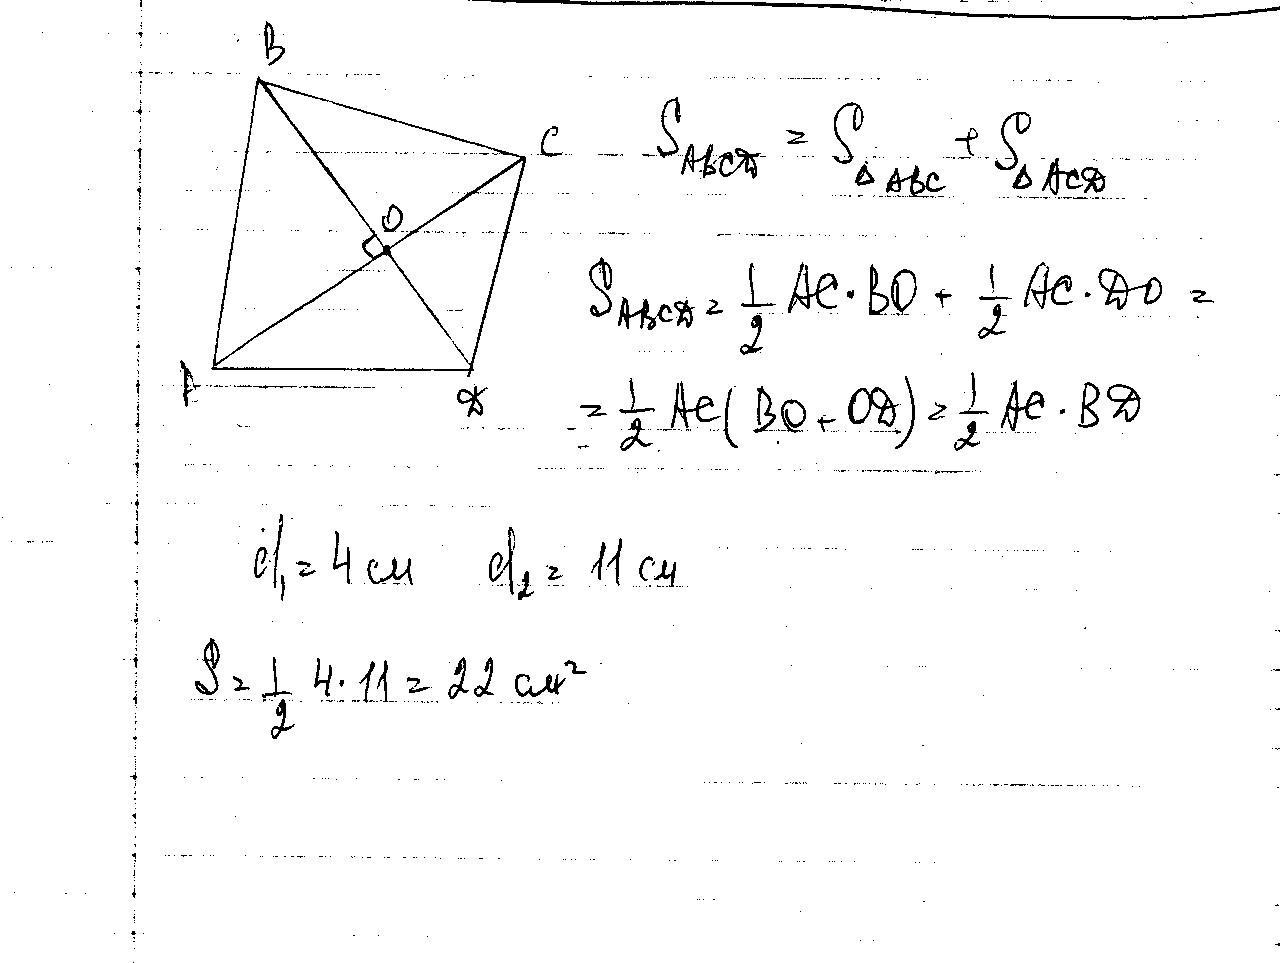 B
C
O
A
D
S ABCD = S Δ ABC + S Δ ACD
S ABCD = 1/2 AC · BO + 1/2 AC · DO =
= 1/2 AC (BO + OD) = 1/2 AC · BD
d₁ = 4 см d₂ = 11 см
S = 1/2 4 · 11 = 22 см²